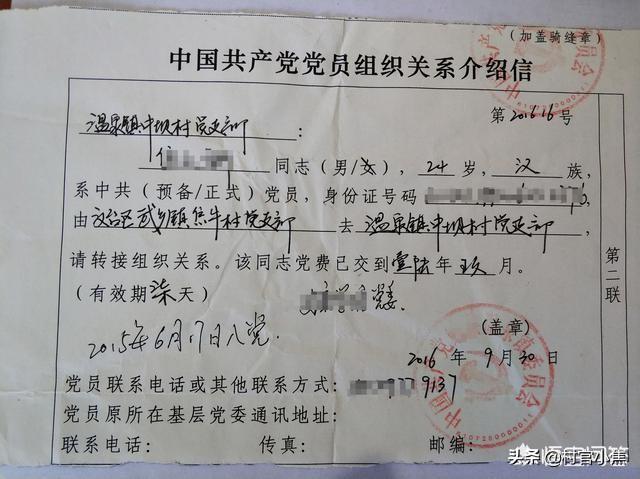 (加盖骑缝章)
中国共产党党员组织关系介绍信
第201616号
温泉镇中坝村党支部:
同志(男/女),24岁,汉族,
系中共(预备/正式)党员,身份证号码
由汉台区武乡镇 牛村党支部去温泉镇中坝村党支部,
请转接组织关系。该同志党费已交到壹陆年玖月。
(有效期柒天)
党委
(盖章)
2015年6月17日入党.
2016年9月30日
党员联系电话或其他联系方式: 9137
党员原所在基层党委通讯地址:
联系电话: 传真: 邮编:
第二联
头条@村官小焦